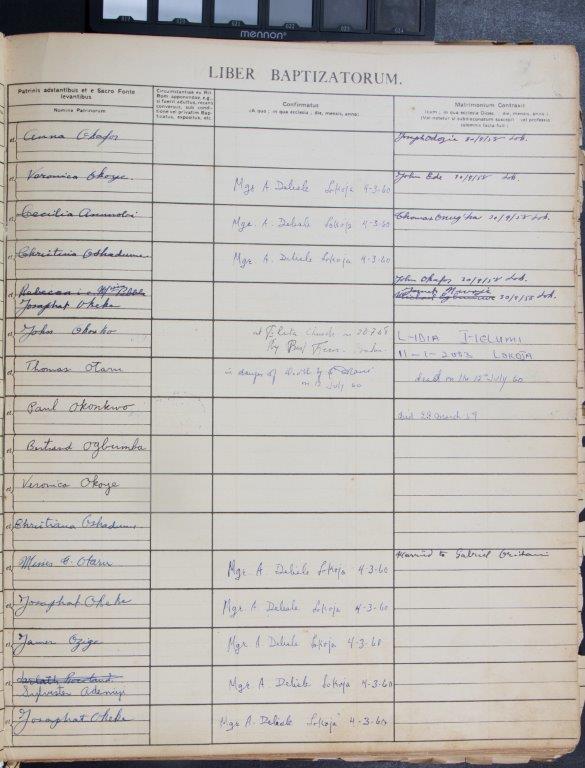 021
022
mennon
LIBER BAPTIZATORUM.
Patrinis adstantibus et e Sacro Fonte
levantibus
Nomina Patrinorum
Circumstantiae ex Rit.
Rom. apponendae, e.g.:
si fuerit adultus, recens
conversus, sub condi-
tione vel privatim Bap-
tizatus, expositus, etc.
Confirmatus
(A quo; in qua ecclesia; die, mensis, anno)
Matrimonium Contraxit
(cum; in qua ecclesia Dioec.; die, mensis, anno)
(Vel notetur si subdiaconatum suscepit; vel professio
solemnis facta fuit)
et Anna Okafor
20/9/58 Lok.
et Veronica Okoye.
Mgr A Delisle Lokoja 4-3-60
John Ede 20/9/58 Lok.
et Cecilia
Mgr. A. Delisle Lokoja 4-3-60
Thomas 20/9/58 Lok
et Christiana Oshadume
Mgr. A. Delisle Lokoja 4-3-60
John Okafor 20/9/58 Lok.
et Rebecca
Josaphat Okeke
20/9/58 Lok.
et John Okonkwo
at Church
By
LIDIA
11-1-2003 LOKOJA
et Thomas Otaru
in danger of death by
on 12 July 60
died on the 12th July 60
et Paul Okonkwo
died 28 March 59
et Bertrand Ogbumba
et Veronica Okoye
et Christiana Oshadume
et Moses E. Otaru
Mgr. A. Delisle Lokoja 4-3-60
Married to Gabriel
et Josaphat Okeke
Mgr. A. Delisle Lokoja 4-3-60
et James Ozigi
Mgr. A. Delisle Lokoja 4-3-60
et
Sylvester Adeniyi
Mgr. A. Delisle Lokoja 4-3-60
et Josaphat Okeke
Mgr. A. Delisle Lokoja 4-3-60